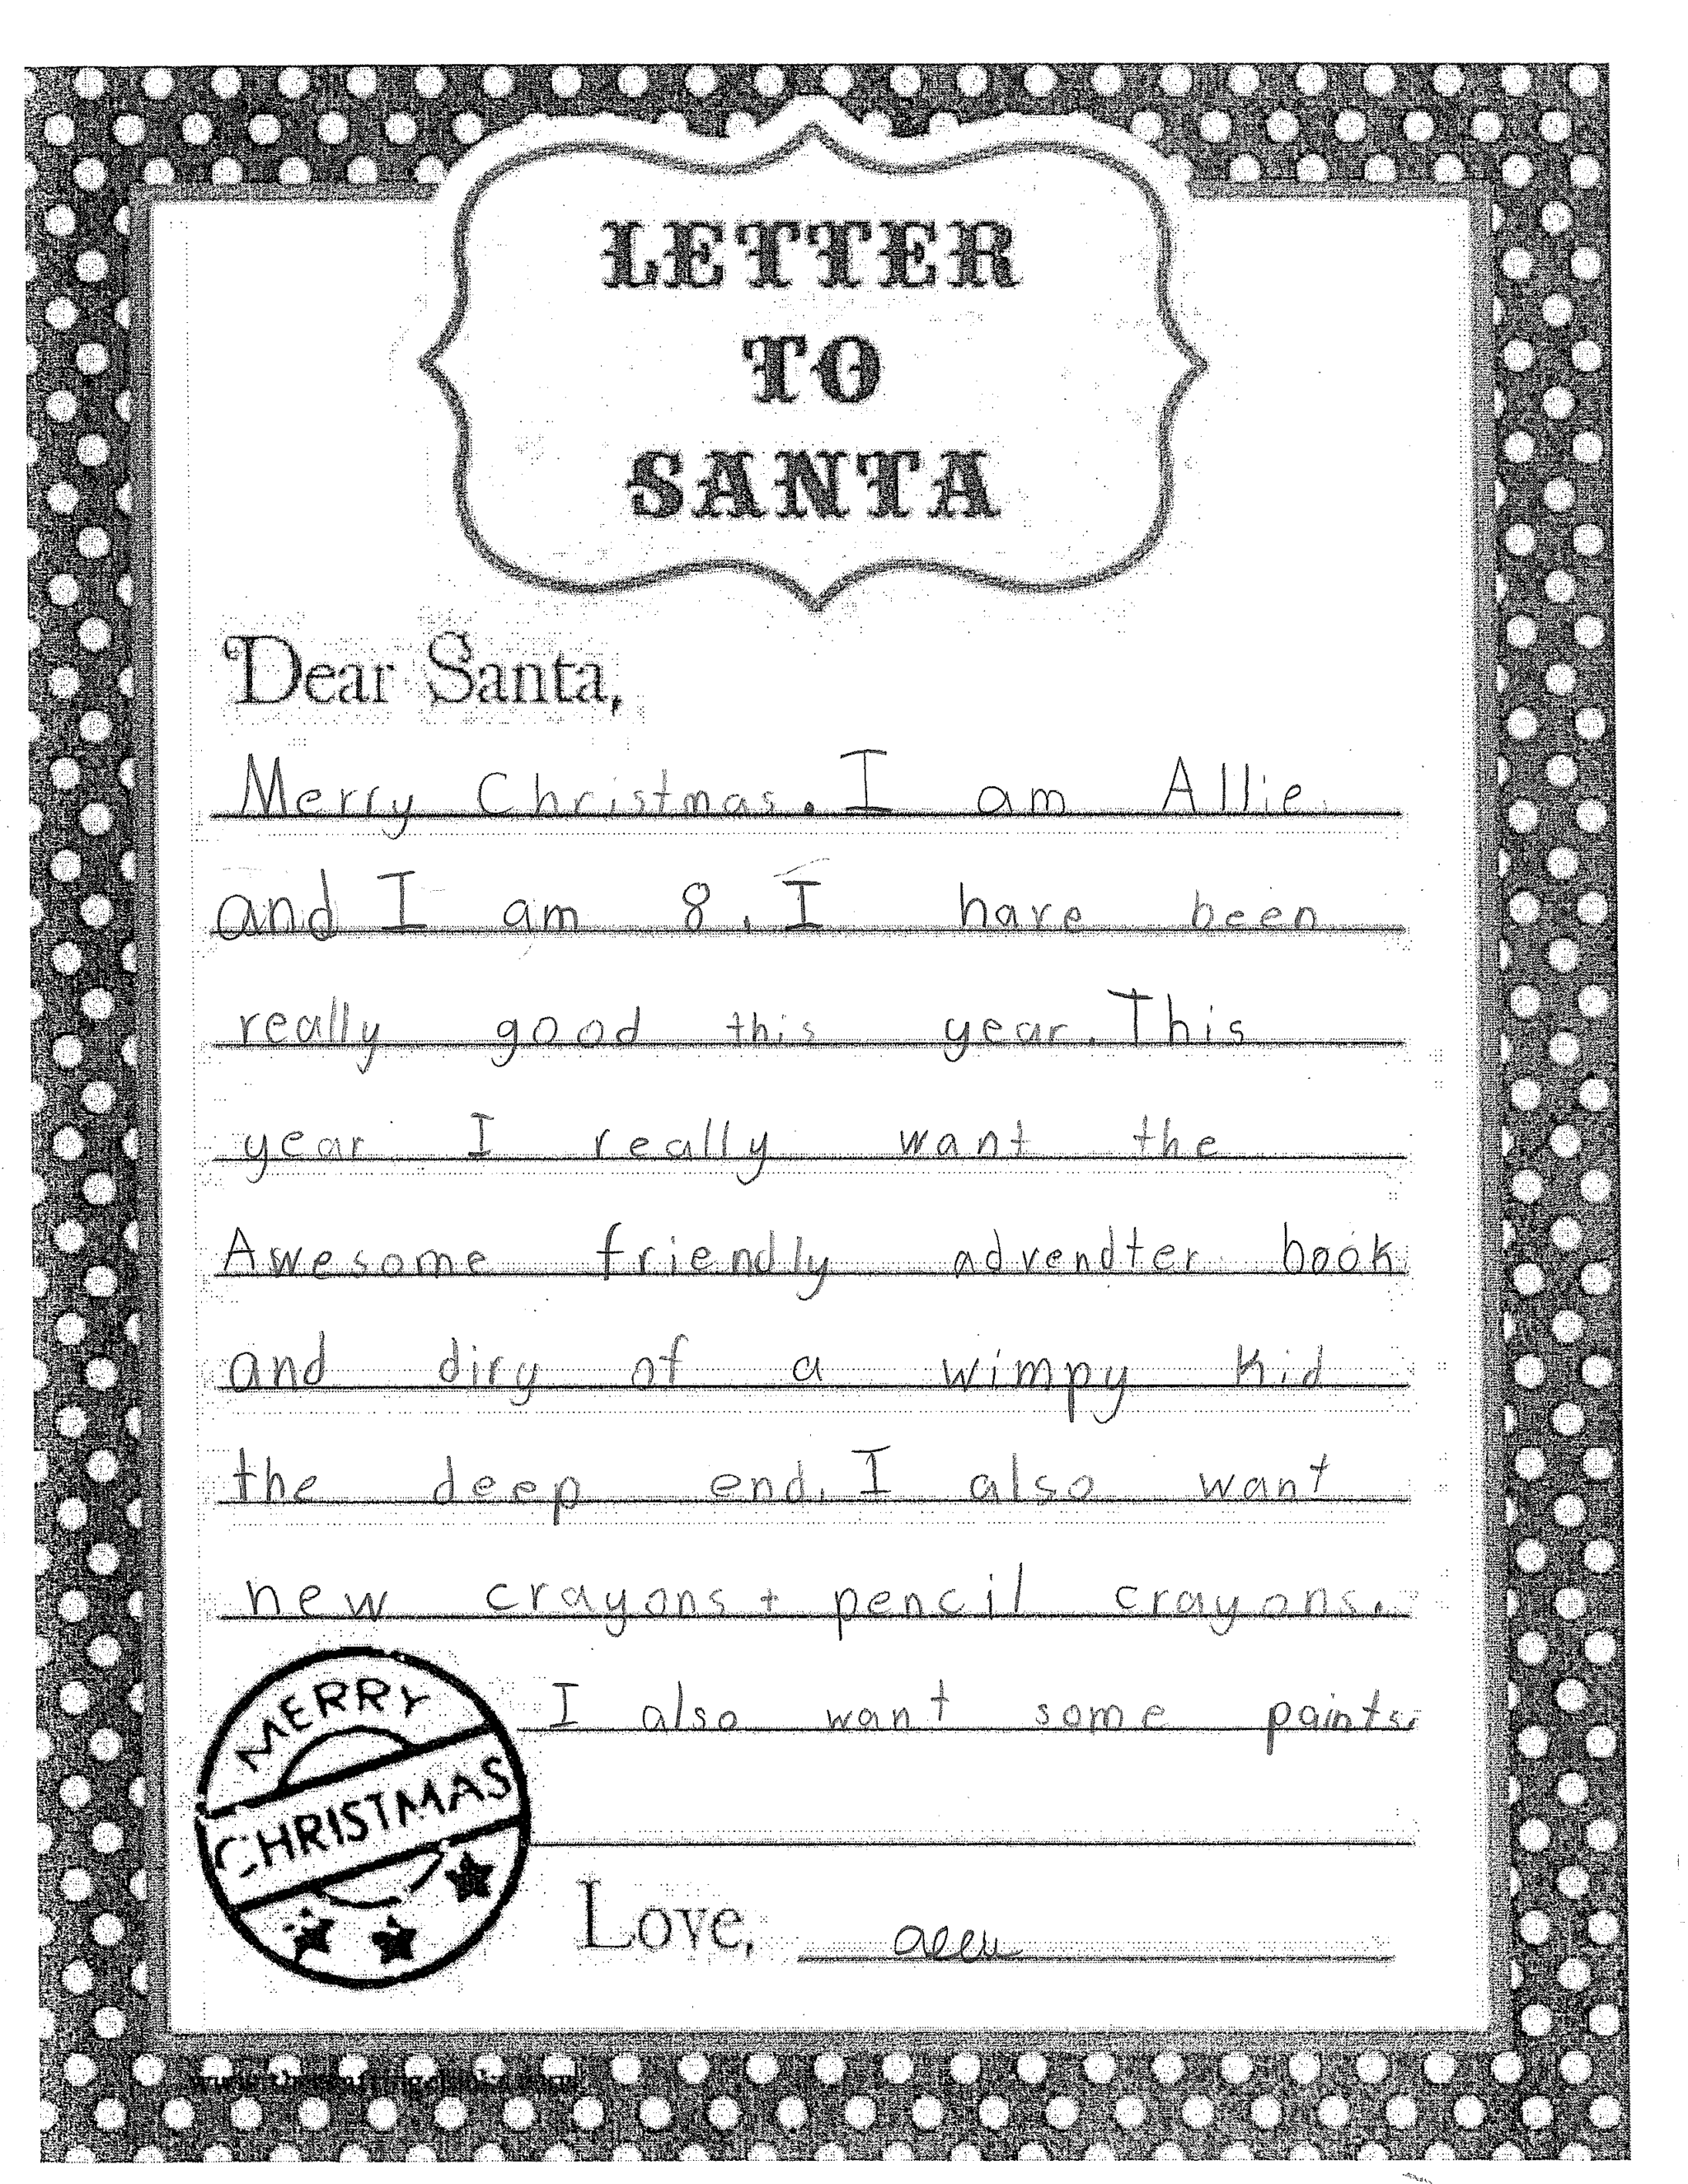 LETTER
TO
SANTA
Dear Santa,
Merry Christmas. I am Allie
and I am 8. I have been
really good this year. This
year I really want the
Awesome friendly advendter book
and diry of a wimpy kid
the deep end. I also want
new crayons + pencil crayons.
I also want some paints.
MERRY
CHRISTMAS
Love,